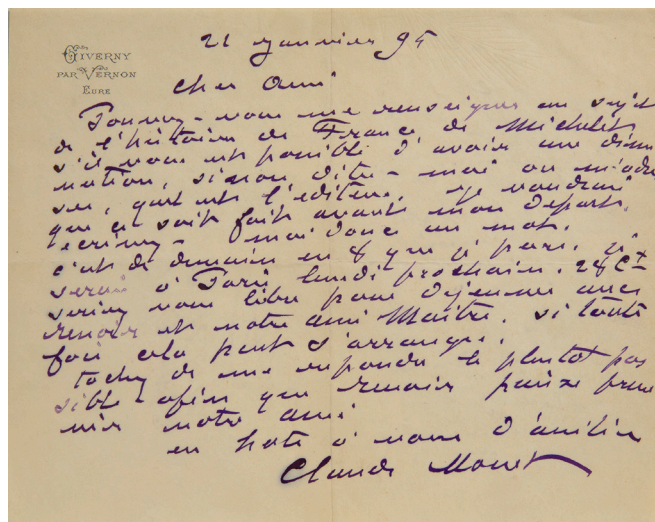 GIVERNY
PAR VERNON
EURE
21 janvier 95
cher ami
Pouvez-vous me renseigner au sujet
de l'histoire de France de Michelet
s'il vous est possible d'avoir une dimi
nution, sinon dites-moi ou m'adres
ser, quel est l'éditeur. je voudrais
que ce soit fait avant mon départ.
écrivez-moi donc un mot.
c'est de demain en 8 que je pars. je
serai à Paris lundi prochain. 28 Ct
seriez vous libre pour déjeuner avec
renoir et notre ami Maitre. si toute
fois cela peut s'arranger.
tachez de me repondre le plutot pos
sible afin que renoir puisse preve
nir notre ami
en hate à vous d'amitié
Claude Monet